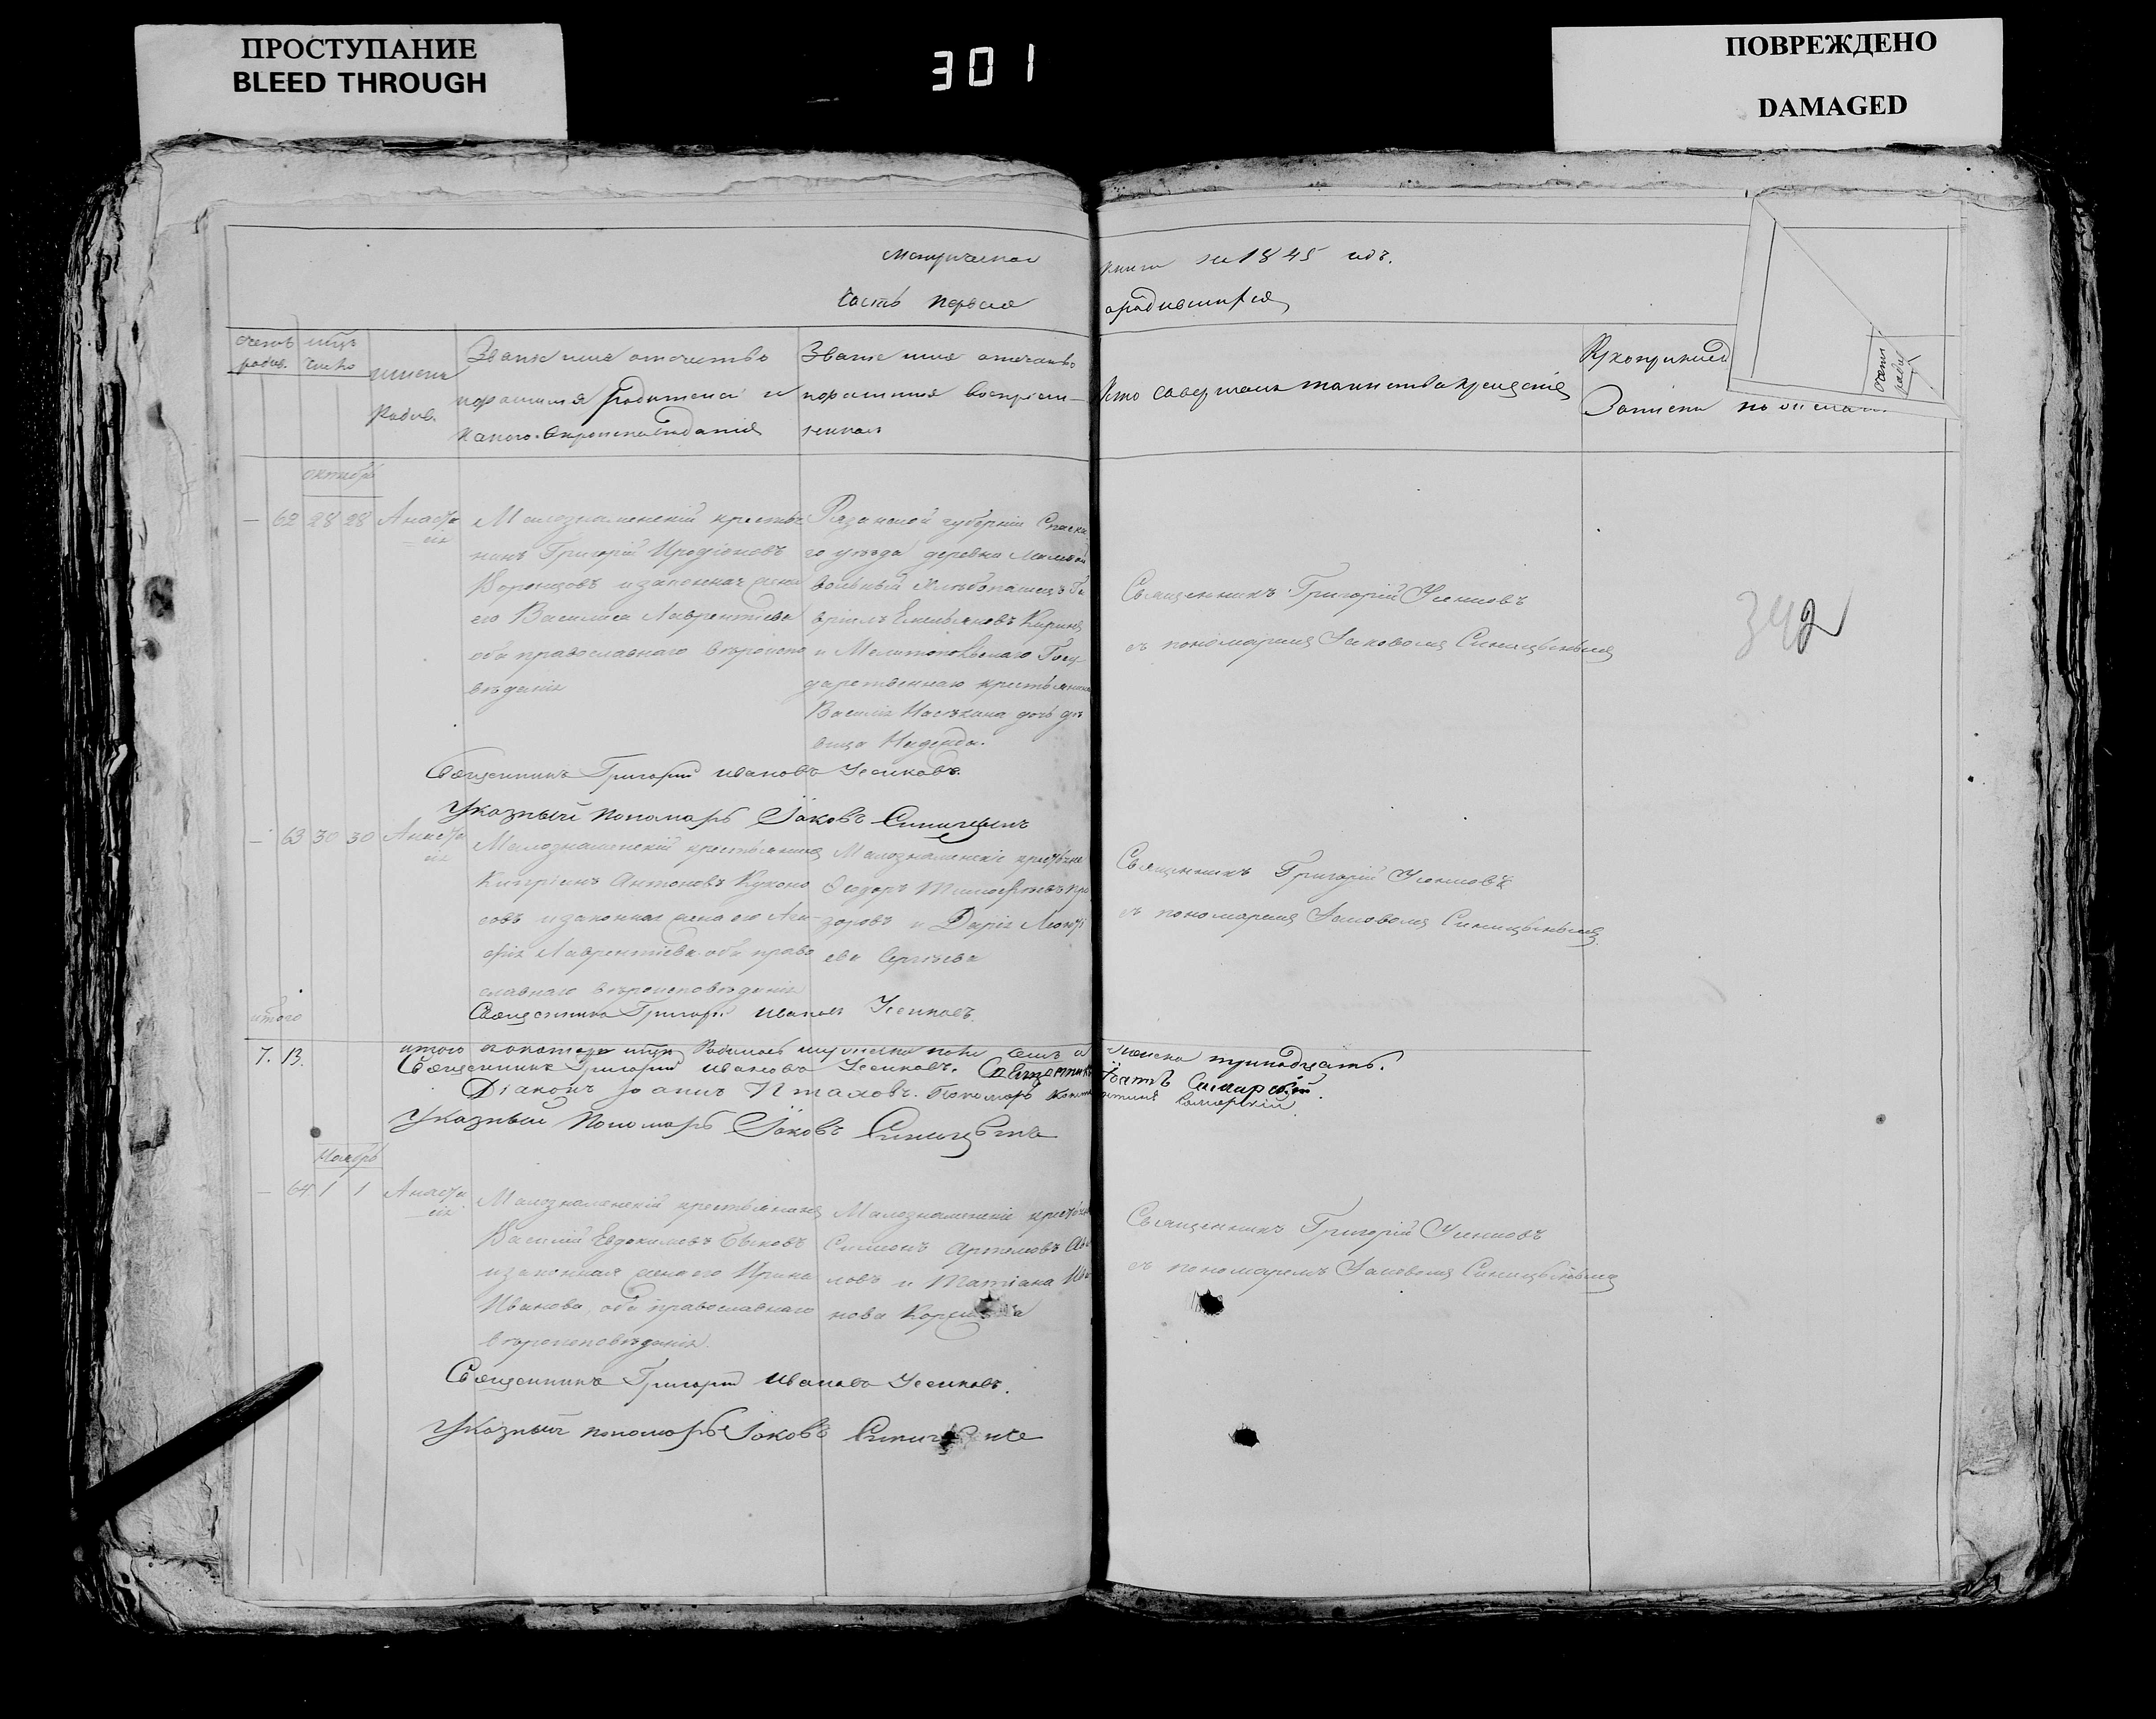 ПРОСТУПАНИЕ
BLEED THROUGH
301
ПОВРЕЖДЕНО
DAMAGED
Метрическая книга на 1845 годъ.
Часть первая о родившихся
счетъ родив.
мѣц. число
имена родив.
Званіе имя отчество
и фамилія родителей и
какого вѣроисповѣданія
Званіе имя отчество
и фамилія воспріем-
никовъ
Кто совершалъ таинство крещенія
Рукоприкл
Записи по
октябрь
62 28 28 Анаста
сія
Малознаменскій крестья
нинъ Григорій Иродіоновъ
Воронцовъ и законная жена
его Василиса Лаврентіева
оба православнаго вѣроиспо
вѣданія
Рязанской губерніи Спаска
го уѣзда деревни
вольный хлѣбопашецъ Га
вріилъ Емельяновъ
и Мелитопольскаго Госу-
дарственнаго крестьянина
Василія дочь дѣ
вица
Священникъ Григорій Усиковъ
съ пономаремъ Іаковомъ Синицынымъ
342
Священникъ Григорій Ивановъ Усиковъ.
Указный пономарь Іаковъ Синицынъ
63 30 30 Анаста
сія
Малознаменскій крестьянинъ
Кипріянъ Антоновъ
и законная жена его Ага-
фія Лаврентіева оба право
славнаго вѣроисповѣданія
Малознаменскіе крестьяне
Ѳеодоръ Тимофѣевъ
и Дарія Леонті
ева Сергѣева
Священникъ Григорій Усиковъ
съ пономаремъ Іаковомъ Синицынымъ
Священникъ Григорій Ивановъ Усиковъ.
итого
7. 13.
итого родилось мужеска пола семь а женска тринадцать.
Священникъ Григорій Ивановъ Усиковъ. Священникъ Самарскій.
Діаконъ Іоаннъ Птаховъ. Пономарь
Указный Пономарь Іаковъ Синицынъ
Ноябрь
64 1 1 Анаста
сія
Малознаменскій крестьянинъ
Василій Евдокимовъ Быковъ
и законная жена его Ирина
Иванова, оба православнаго
вѣроисповѣданія.
Малознаменскіе крестьяне
Симеонъ Артемовъ
и Татіана Ива
нова
Священникъ Григорій Усиковъ
съ пономаремъ Іаковомъ Синицынымъ
Священникъ Григорій Ивановъ Усиковъ.
Указный пономарь Іаковъ